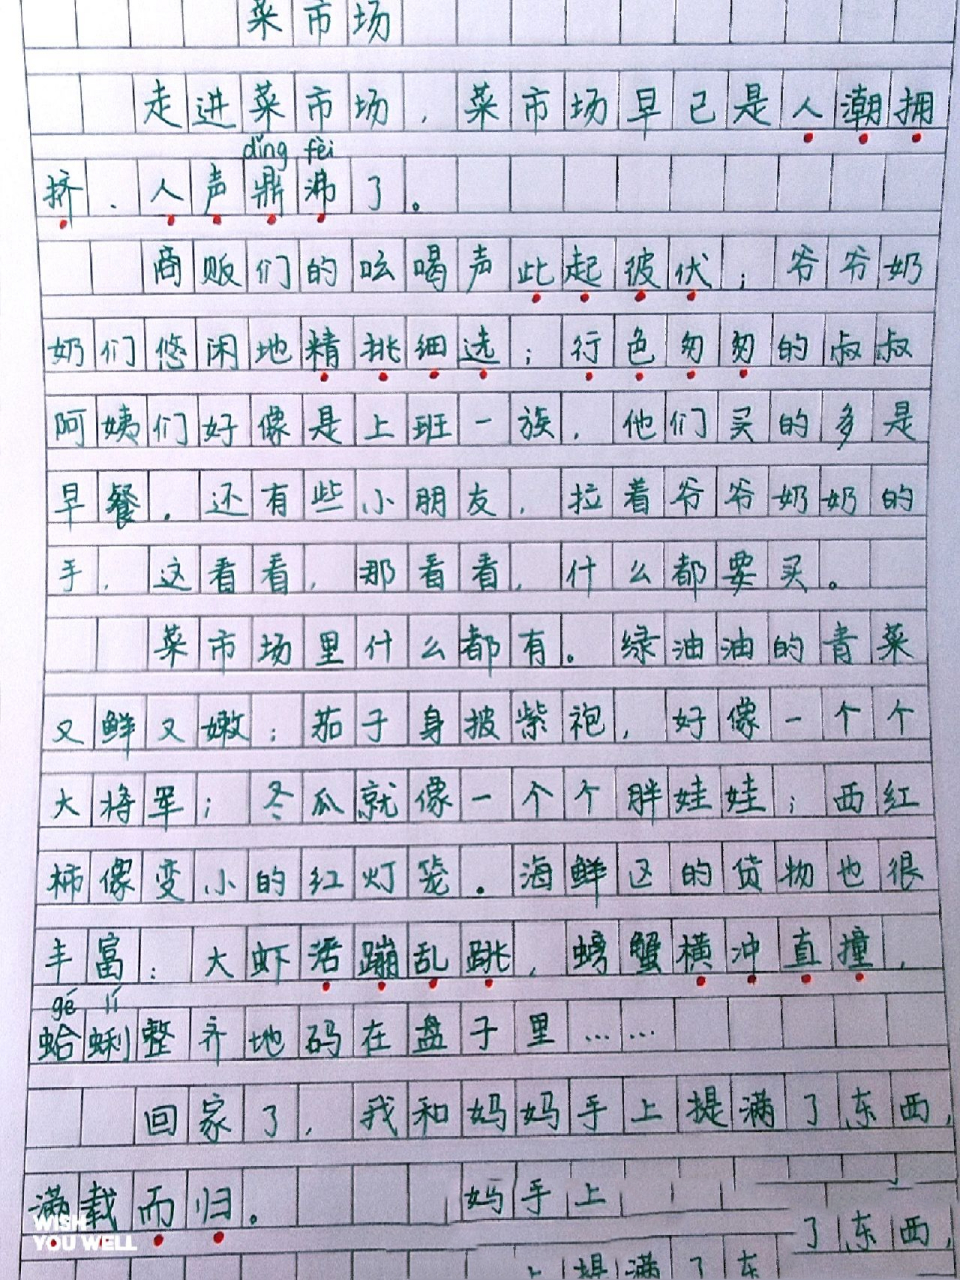 菜市场
走进菜市场，菜市场早已是人潮拥
dǐng fèi
挤、人声鼎沸了。
商贩们的吆喝声此起彼伏；爷爷奶
奶们悠闲地精挑细选；行色匆匆的叔叔
阿姨们好像是上班一族，他们买的多是
早餐。还有些小朋友，拉着爷爷奶奶的
手，这看看，那看看，什么都要买。
菜市场里什么都有。绿油油的青菜
又鲜又嫩；茄子身披紫袍，好像一个个
大将军；冬瓜就像一个个胖娃娃；西红
柿像变小的红灯笼。海鲜区的货物也很
丰富：大虾活蹦乱跳，螃蟹横冲直撞，
gé lí
蛤蜊整齐地码在盘子里……
回家了，我和妈妈手上提满了东西，
满载而归。
妈手上
了东西，
上提满了东
WISH
YOU WELL